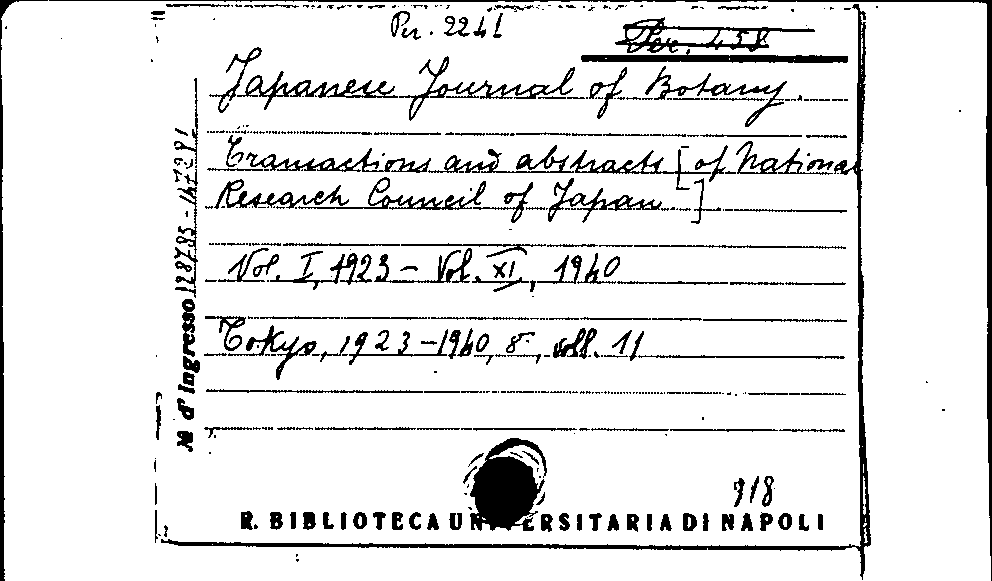 Per. 2241
Per. 458
Japanese Journal of Botany.
Transactions and abstracts [of National
Research Council of Japan.]
Vol. I, 1923 – Vol. XI, 1940
Tokyo, 1923–1940, 8°, voll. 11
N.º d' Ingresso 128785 - 147291
918
R. BIBLIOTECA UNIVERSITARIA DI NAPOLI